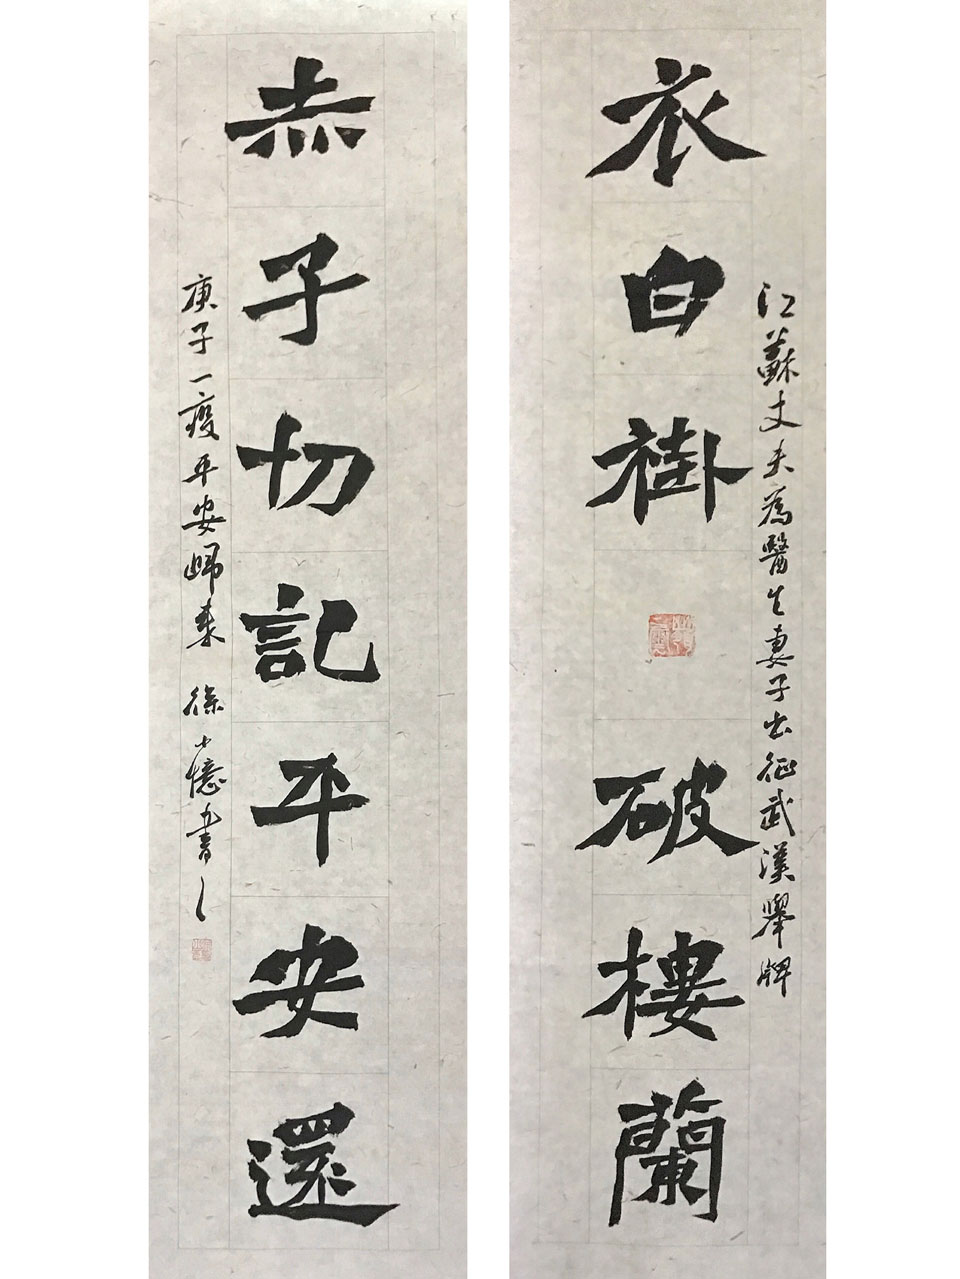 江蘇丈夫為醫生妻子出征武漢舉牌
衣白褂破樓蘭
赤子切記平安還
庚子一疫平安歸来 徐小憶書之